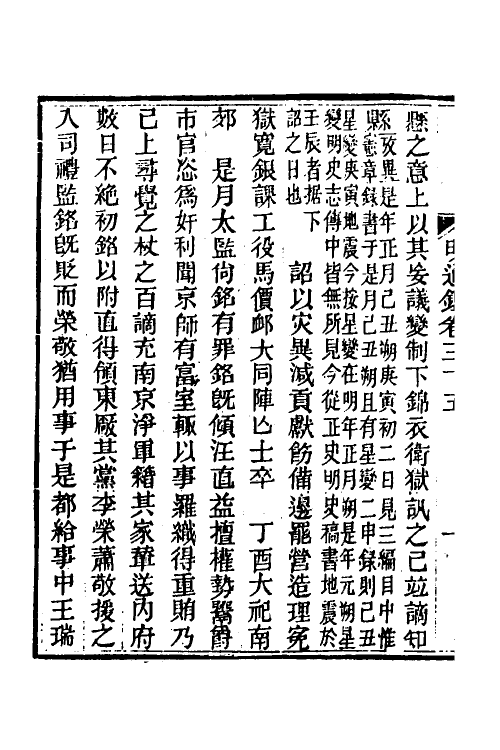 明通鑑卷三十五 一
懸之意上以其妄議變制下錦衣衛獄訊之己並謫知
縣攷異是年正月己丑朔庚寅初二日見三編目中惟
縣憲章錄書于是月己丑朔且有星變二申錄則己丑
星變庚寅地震今按星變在明年正月朔是年元朔星
變明史志傳中皆無所見今從正史明史稿書地震於
壬辰者据下
詔之日也 詔以災異減貢獻飭備邊罷營造理寃
獄寬銀課工役馬價卹大同陣亾士卒 丁酉大祀南
郊 是月太監尙銘有罪銘旣傾汪直益擅權勢鬻爵
市官恣爲奸利聞京師有富室輒以事羅織得重賄乃
已上尋覺之杖之百謫充南京淨軍籍其家輦送內府
數日不絶初銘以附直得領東厰其黨李榮蕭敬援之
入司禮監銘旣貶而榮敬猶用事于是都給事中王瑞